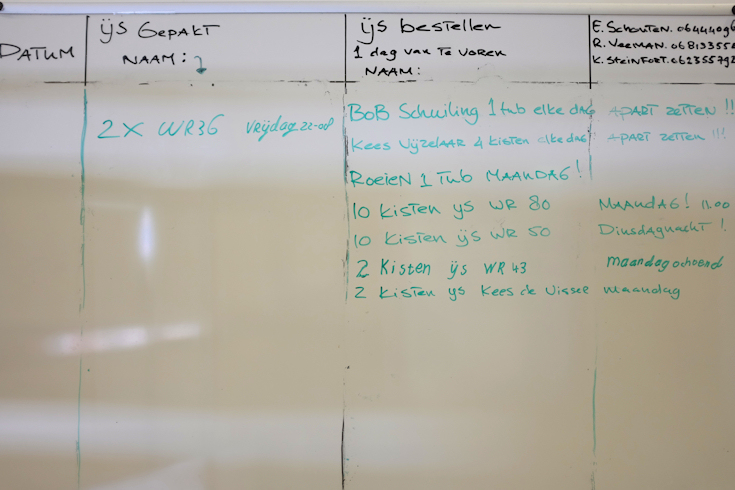 DATUM
ÿS GEPAKT
NAAM:
2X WR36 VRIJDAG 22-08
ÿs bestellen
1 dag van te voren
NAAM:
E. SCHOUTEN. 06444096
R. VEEMAN. 06813355
K. STEINFORT. 062355792
BOB Schuiling 1 tub elke dag APART ZETTEN !!
Kees VIJZELAAR 4 kisten elke dag APART ZETTEN !!!
ROEIEN 1 TUB MAANDAG!
10 kisten ys WR 80 MAANDAG! 11.00
10 kisten ÿs WR 50 Dinsdagnacht !
2 Kisten ÿs WR 43 maandagochtend
2 kisten ys Kees de Visser maandag